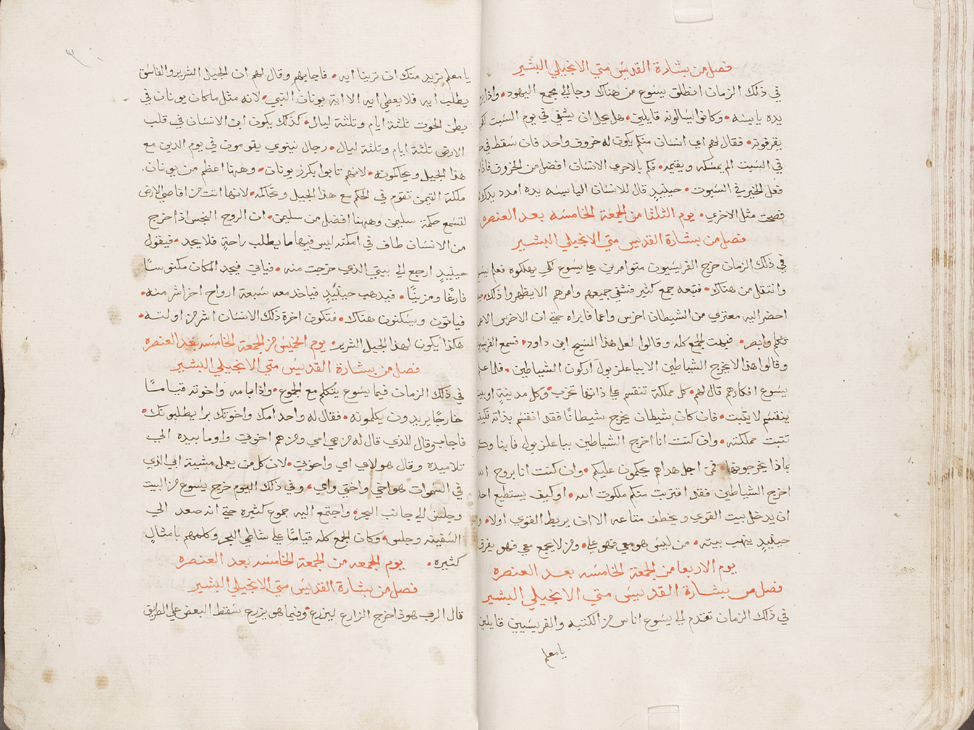 فصل من بشارة القديس متي الانجيلي البشير
في ذلك الزمان انطلق يسوع من هناك وجا الي مجمع اليهود • واذا
يده يابسه • وكانوا يسالونه قايلين • هل يحل ان يشفي في يوم السبت لكي
يقرفونه • فقال لهم اي انسان منكم يكون له خروف واحد فان سقط في
في السبت الم يمسكه ويقيمه • فكم بالاحري الانسان افضل من الخروف فاذا
فعل الخير في السبوت • حينيد قال للانسان اليابسه يده امدد يدك
فصحت مثل الاخري • يوم الثلثا من الجمعة الخامسه بعد العنصره
فصل من بشارة القديس متي الانجيلي البشير
في ذلك الزمان خرج الفريسيون متوامرين علي يسوع لكي يهلكوه فعلم
وانتقل من هناك • فتبعه جمع كثير فشفي جميعهم وامرهم الا يظهروا ذلك
احضر اليه معتري من الشيطان اخرس واعما فابراه حتي ان الاخرس
تكلم وابصر • فبهت الجمع كله وقالوا لعل هذا المسيح ابن داود • فسمع
وقالوا هذا لا يخرج الشياطين الا بباعلزبول اركون الشياطين • فلما علم
يسوع افكارهم قال لهم • كل مملكة تنقسم علي ذاتها تخرب وكل مدينة او
ينقسم لا يثبت • فان كان شيطان يخرج شيطانًا فقد انقسم بذاته فكيف
تثبت مملكته • وان كنت انا اخرج الشياطين بباعلزبول فابناوكم
باذا يخرجونها • فمن اجل هذا هم يحكمون عليكم • وان كنت انا بروح
اخرج الشياطين فقد اقتربت منكم ملكوت الله • او كيف يستطيع احد
ان يدخل بيت القوي ويخطف متاعه الا ان يربط القوي اولا •
حينيد ينهب بيته • من ليس هو معي فهو علي • ومن لا يجمع معي فهو يفرق
يوم الاربعا من الجمعة الخامسه بعد العنصره
فصل من بشارة القديس متي الانجيلي البشير
في ذلك الزمان تقدم الي يسوع اناس من الكتبه والفريسيين قايلين
يا معلم
يا معلم نريد منك ان ترينا ايه • فاجابهم وقال لهم ان الجيل الشرير والفاسق
يطلب ايه فلا يعطي ايه الا اية يونان النبي • لانه مثل ما كان يونان في
بطن الحوت ثلثة ايام وثلثة ليال • كذلك يكون ابن الانسان في قلب
الارض ثلثة ايام وثلثة ليال • رجال نينوي يقومون في يوم الدين مع
هذا الجيل ويحاكمونه • لانهم تابوا بكرز يونان • وههنا اعظم من يونان •
ملكة التيمن تقوم في الحكم مع هذا الجيل وتحاكمه • لانها اتت من اقاصي الارض
لتسمع حكمة سليمن وههنا افضل من سليمن • ان الروح النجس اذا خرج
من الانسان طاف في امكنه ليس فيها ما يطلب راحةً فلا يجد • فيقول
حينيدٍ ارجع الي بيتي الذي خرجت منه • فياتي فيجد المكان مكنوسًا
فارغًا ومزينًا • فيذهب حينيدٍ فياخد معه سبعة ارواح اخر اشر منه •
فياتون ويسكنون هناك • فتكون اخرة ذلك الانسان اشر من اولته •
هكذا يكون لهذا الجيل الشرير • يوم الخميس من الجمعة الخامسه بعد العنصره
فصل من بشارة القديس متي الانجيلي البشير
في ذلك الزمان فيما يسوع يتكلم مع الجموع • واذا بامه واخوته قيامًا
خارجًا يريدون يكلمونه • فقال له واحد امك واخوتك برا يطلبونك •
فاجاب وقال للذي قال له من هي امي ومن هم اخوتي واوما بيده الي
تلاميذه وقال هولاي امي واخوتي • لان كل من يعمل مشية ابي الذي
في السموات هو اخي واختي وامي • وفي ذلك اليوم خرج يسوع من البيت
وجلس الي جانب البحر • واجتمع اليه جموع كثيره حتي انه صعد الي
السفينه وجلس • وكان الجمع كله قيامًا علي شاطي البحر وكلمهم بامثال
كثيره • يوم الجمعه من الجمعة الخامسه بعد العنصره
فصل من بشارة القديس متي الانجيلي البشير
قال الرب هوذا خرج الزارع ليزرع • وفيما هو يزرع سقط البعض علي الطريق